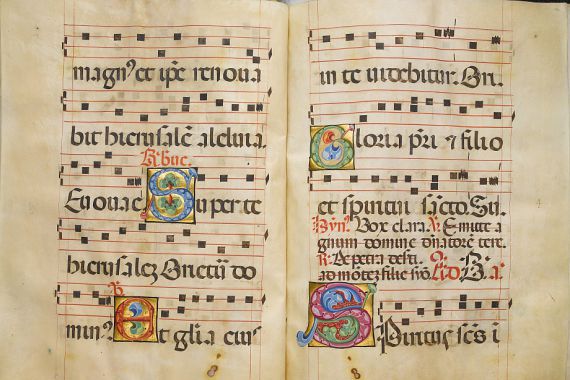 magn⁹ et ip̄e renova
bit hierusalē aleluia.
R̃. buc.
Euouae Super te
hierusalez Oriet᷑ do
min⁹ Et gl̄ia eius
in te videbitur. Ori.
Gloria p̄ri ⁊ filio
et spiritui sācto. Su.
Hyn⁹. Vox clara. V̄. Emitte a
gnum domine dn̄atorē terre.
R̄. De petra deserti.
ad mōtez filie syō. Ad. B. a
Spiritus scūs i